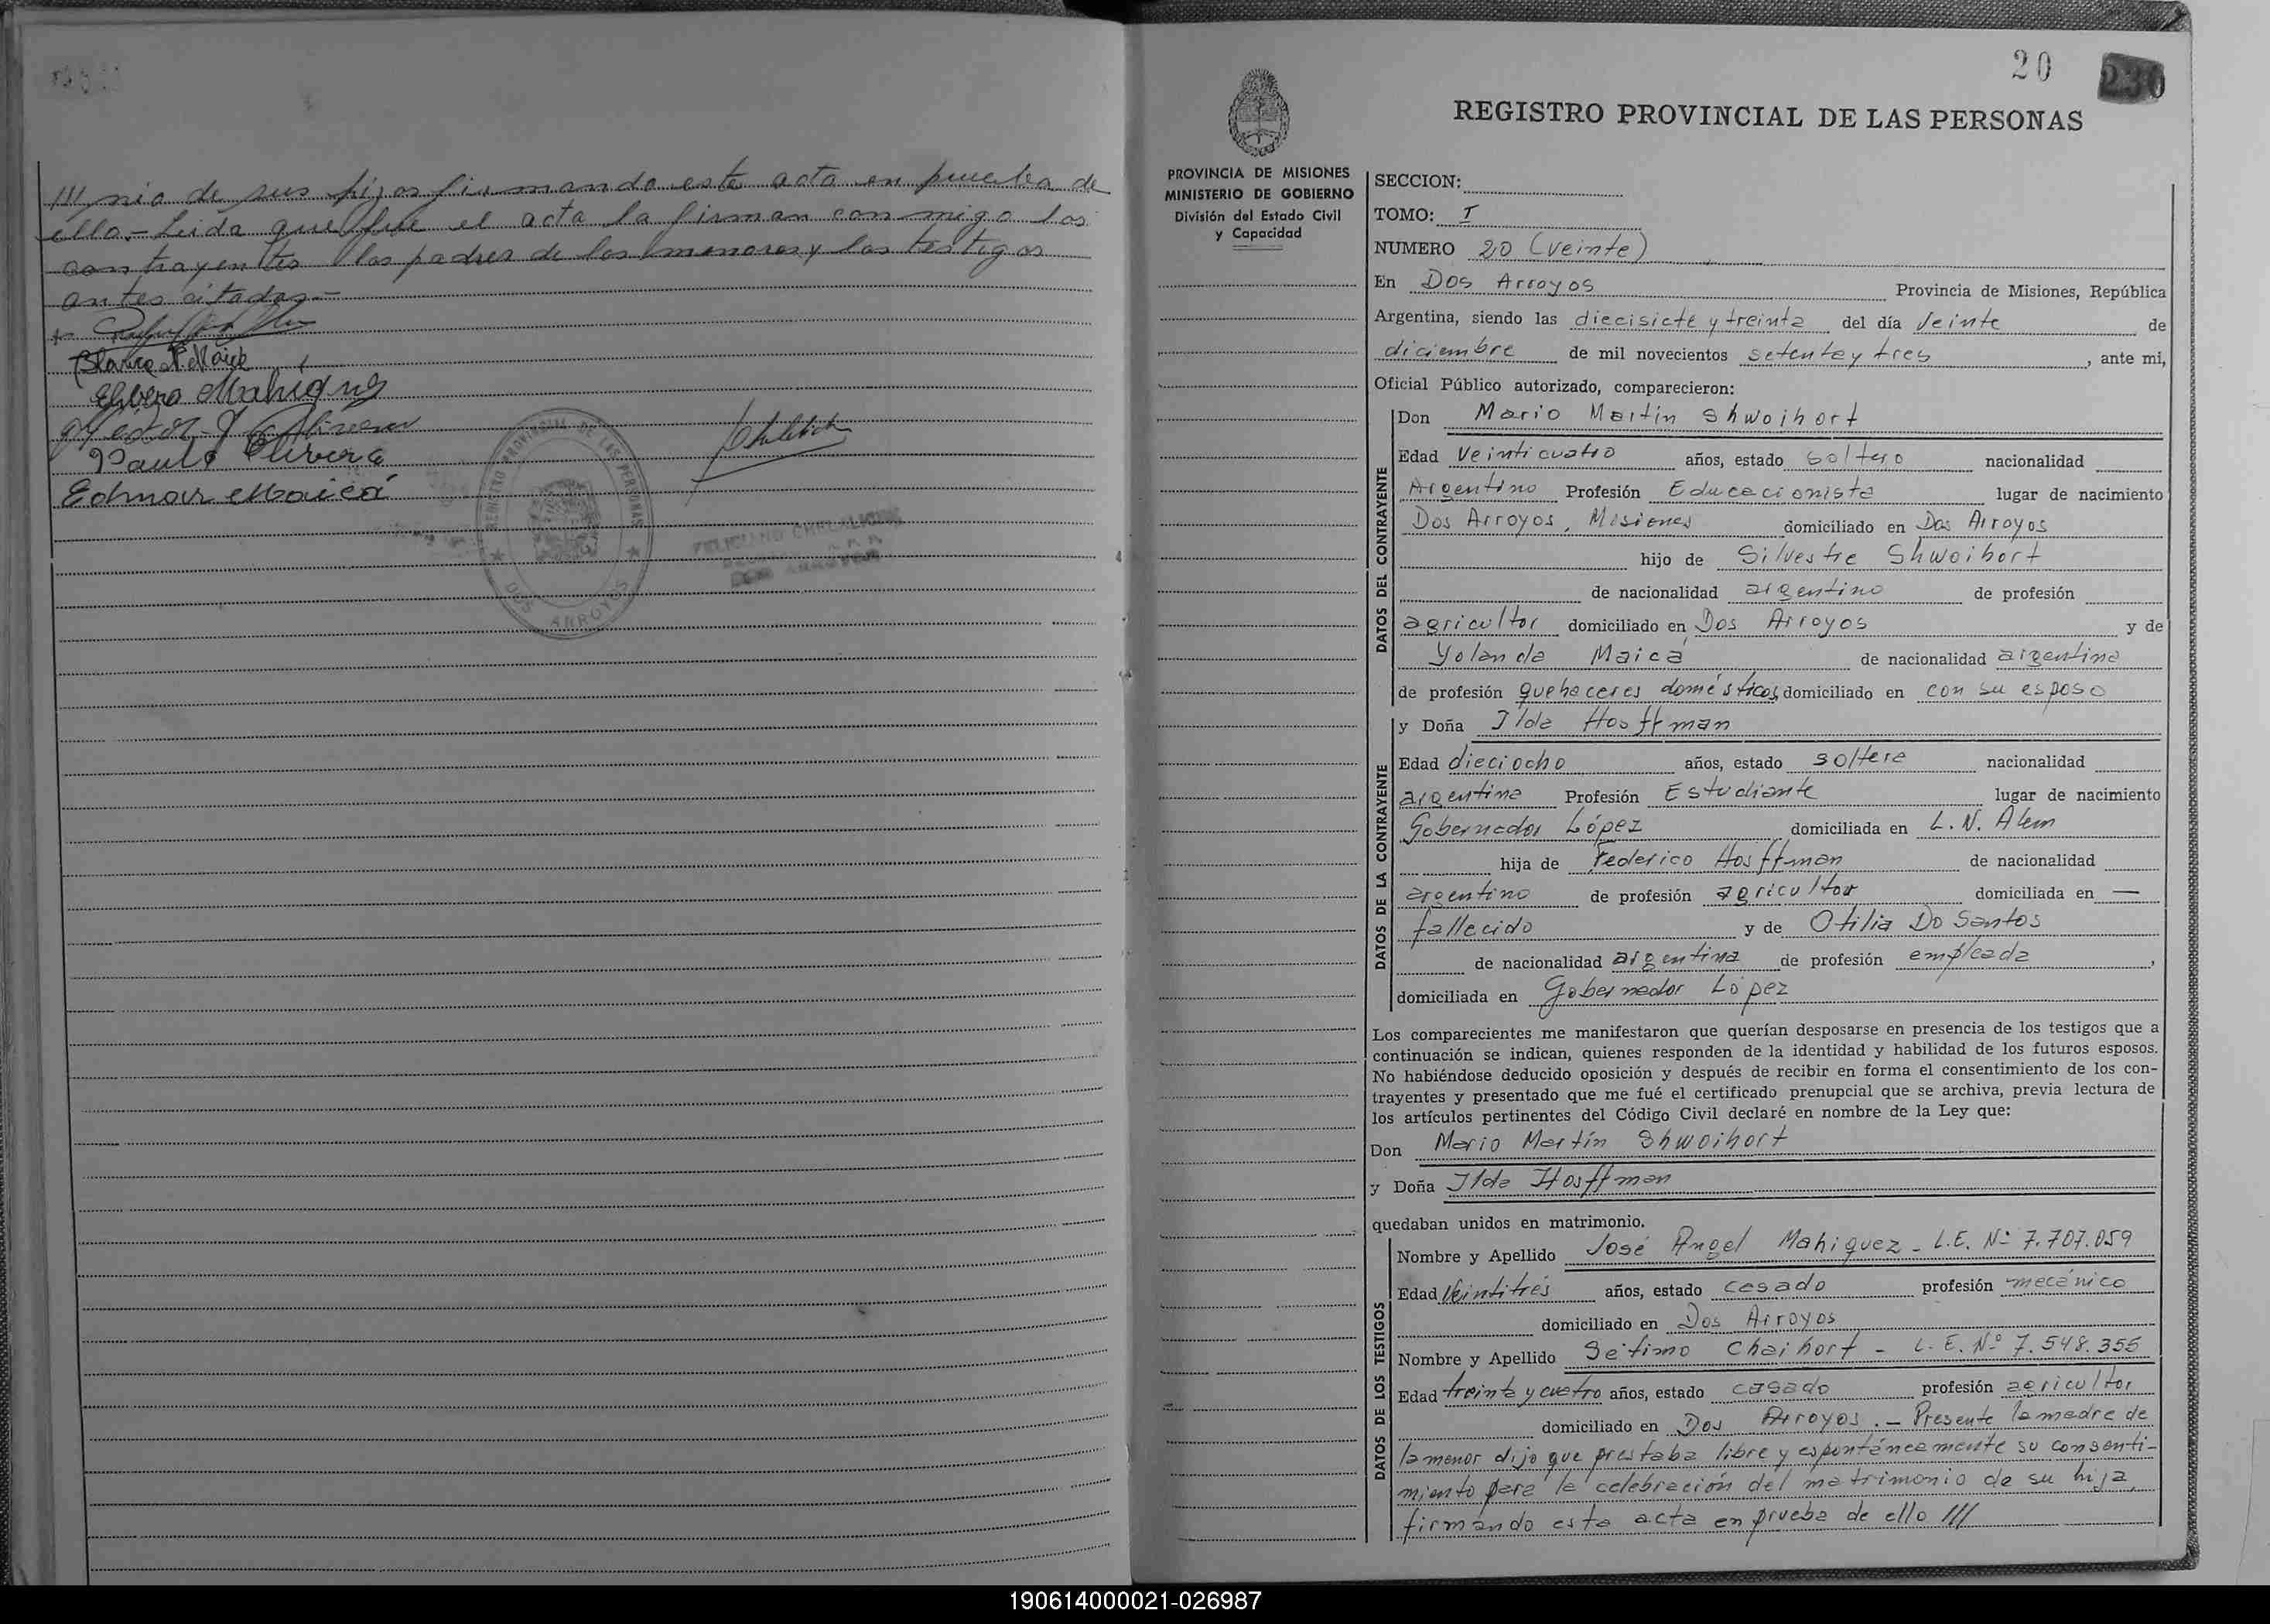 /// nio de sus hijos firmando este acta en prueba de
ello.- Leida que fue el acta la firman con migo los
contrayentes los padres de los menores y los testigos
antes citados.-
Paulo Olivera
Edmar Maicá
REGISTRO PROVINCIAL DE LAS PERSONAS
DOS ARROYOS
20
230
REGISTRO PROVINCIAL DE LAS PERSONAS
PROVINCIA DE MISIONES
MINISTERIO DE GOBIERNO
División del Estado Civil
y Capacidad
SECCION:
TOMO: I
NUMERO 20 (veinte)
En Dos Arroyos Provincia de Misiones, República
Argentina, siendo las diecisiete y treinta del día Veinte de
diciembre de mil novecientos setenta y tres, ante mi,
Oficial Público autorizado, comparecieron:
DATOS DEL CONTRAYENTE
Don Mario Martín Shwoihort
Edad Veinticuatro años, estado soltero nacionalidad
Argentino Profesión Educacionista lugar de nacimiento
Dos Arroyos, Misiones domiciliado en Dos Arroyos
hijo de Silvestre Shwoihort
de nacionalidad argentino de profesión
agricultor domiciliado en Dos Arroyos y de
Yolanda Maicá de nacionalidad argentina
de profesión quehaceres domésticos domiciliado en con su esposo
DATOS DE LA CONTRAYENTE
y Doña Ilda Hosffman
Edad dieciocho años, estado soltera nacionalidad
argentina Profesión Estudiante lugar de nacimiento
Gobernador López domiciliada en L. N. Alem
hija de Federico Hosffman de nacionalidad
argentino de profesión agricultor domiciliada en —
fallecido y de Otilia Do Santos
de nacionalidad argentina de profesión empleada,
domiciliada en Gobernador López
Los comparecientes me manifestaron que querían desposarse en presencia de los testigos que a
continuación se indican, quienes responden de la identidad y habilidad de los futuros esposos.
No habiéndose deducido oposición y después de recibir en forma el consentimiento de los con-
trayentes y presentado que me fué el certificado prenupcial que se archiva, previa lectura de
los artículos pertinentes del Código Civil declaré en nombre de la Ley que:
Don Mario Martín Shwoihort
y Doña Ilda Hosffman
quedaban unidos en matrimonio.
DATOS DE LOS TESTIGOS
Nombre y Apellido José Angel Mahiquez - L.E. Nº 7.707.059
Edad Veintitrés años, estado casado profesión mecánico
domiciliado en Dos Arroyos
Nombre y Apellido Setimo Chaihort - L.E. Nº 7.548.355
Edad treinta y cuatro años, estado casado profesión agricultor
domiciliado en Dos Arroyos.- Presente la madre de
la menor dijo que prestaba libre y espontáneamente su consenti-
miento para la celebración del matrimonio de su hija,
firmando esta acta en prueba de ello ///
190614000021-026987